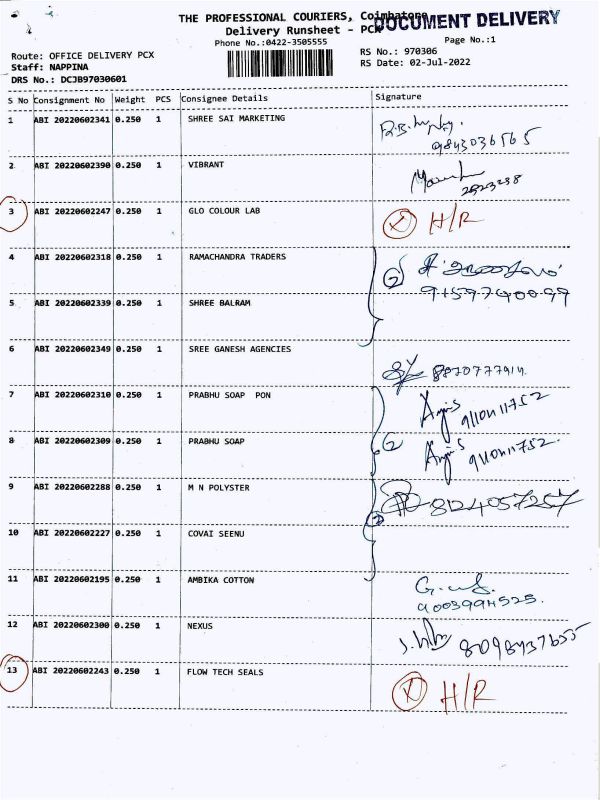 THE PROFESSIONAL COURIERS, Coimbatore
DOCUMENT DELIVERY
Delivery Runsheet - PCX
Phone No.:0422-3505555
Page No.:1
Route: OFFICE DELIVERY PCX
RS No.: 970306
Staff: NAPPINA
RS Date: 02-Jul-2022
DRS No.: DCJB97030601
S No Consignment No Weight PCS Consignee Details Signature
1 ABI 20220602341 0.250 1 SHREE SAI MARKETING
9843036565
2 ABI 20220602390 0.250 1 VIBRANT
3 ABI 20220602247 0.250 1 GLO COLOUR LAB H/R
4 ABI 20220602318 0.250 1 RAMACHANDRA TRADERS
2
9159740099
5 ABI 20220602339 0.250 1 SHREE BALRAM
6 ABI 20220602349 0.250 1 SREE GANESH AGENCIES
7 ABI 20220602310 0.250 1 PRABHU SOAP PON
8 ABI 20220602309 0.250 1 PRABHU SOAP
2
9 ABI 20220602288 0.250 1 M N POLYSTER 8124057257
10 ABI 20220602227 0.250 1 COVAI SEENU
11 ABI 20220602195 0.250 1 AMBIKA COTTON
12 ABI 20220602300 0.250 1 NEXUS
13 ABI 20220602243 0.250 1 FLOW TECH SEALS H/R